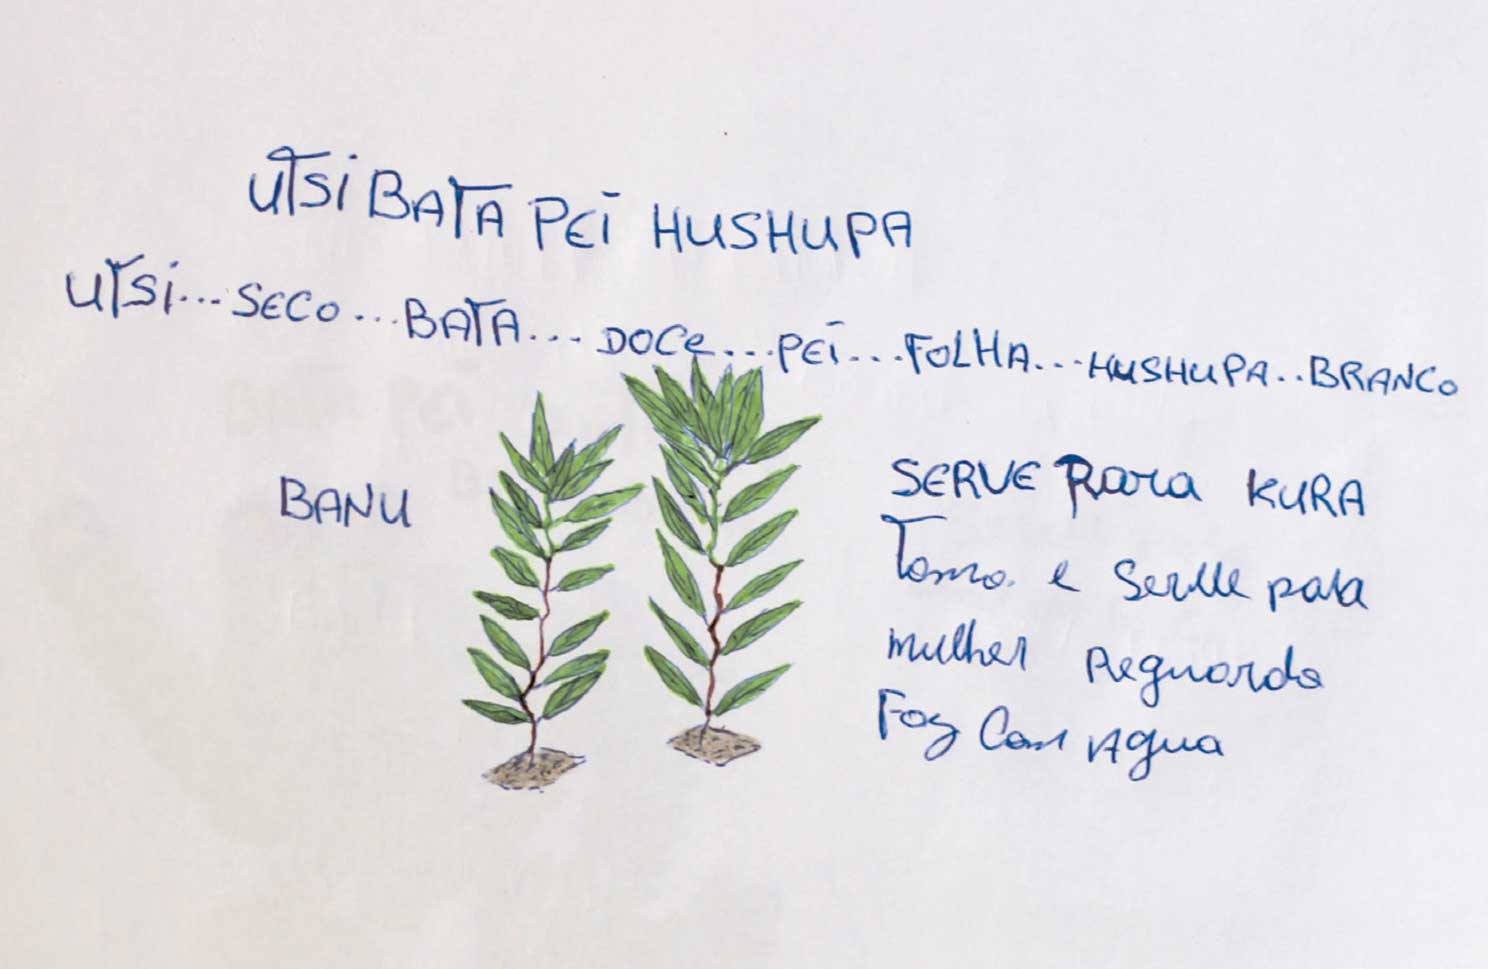 UTSI BATA PEĪ HUSHUPA
UTSI... SECO... BATA... DOCE... PEĪ... FOLHA... HUSHUPA.. BRANCO
BANU
SERVE Para KURA
Toma e Serve para
mulher Reguarda
Faz Com Agua